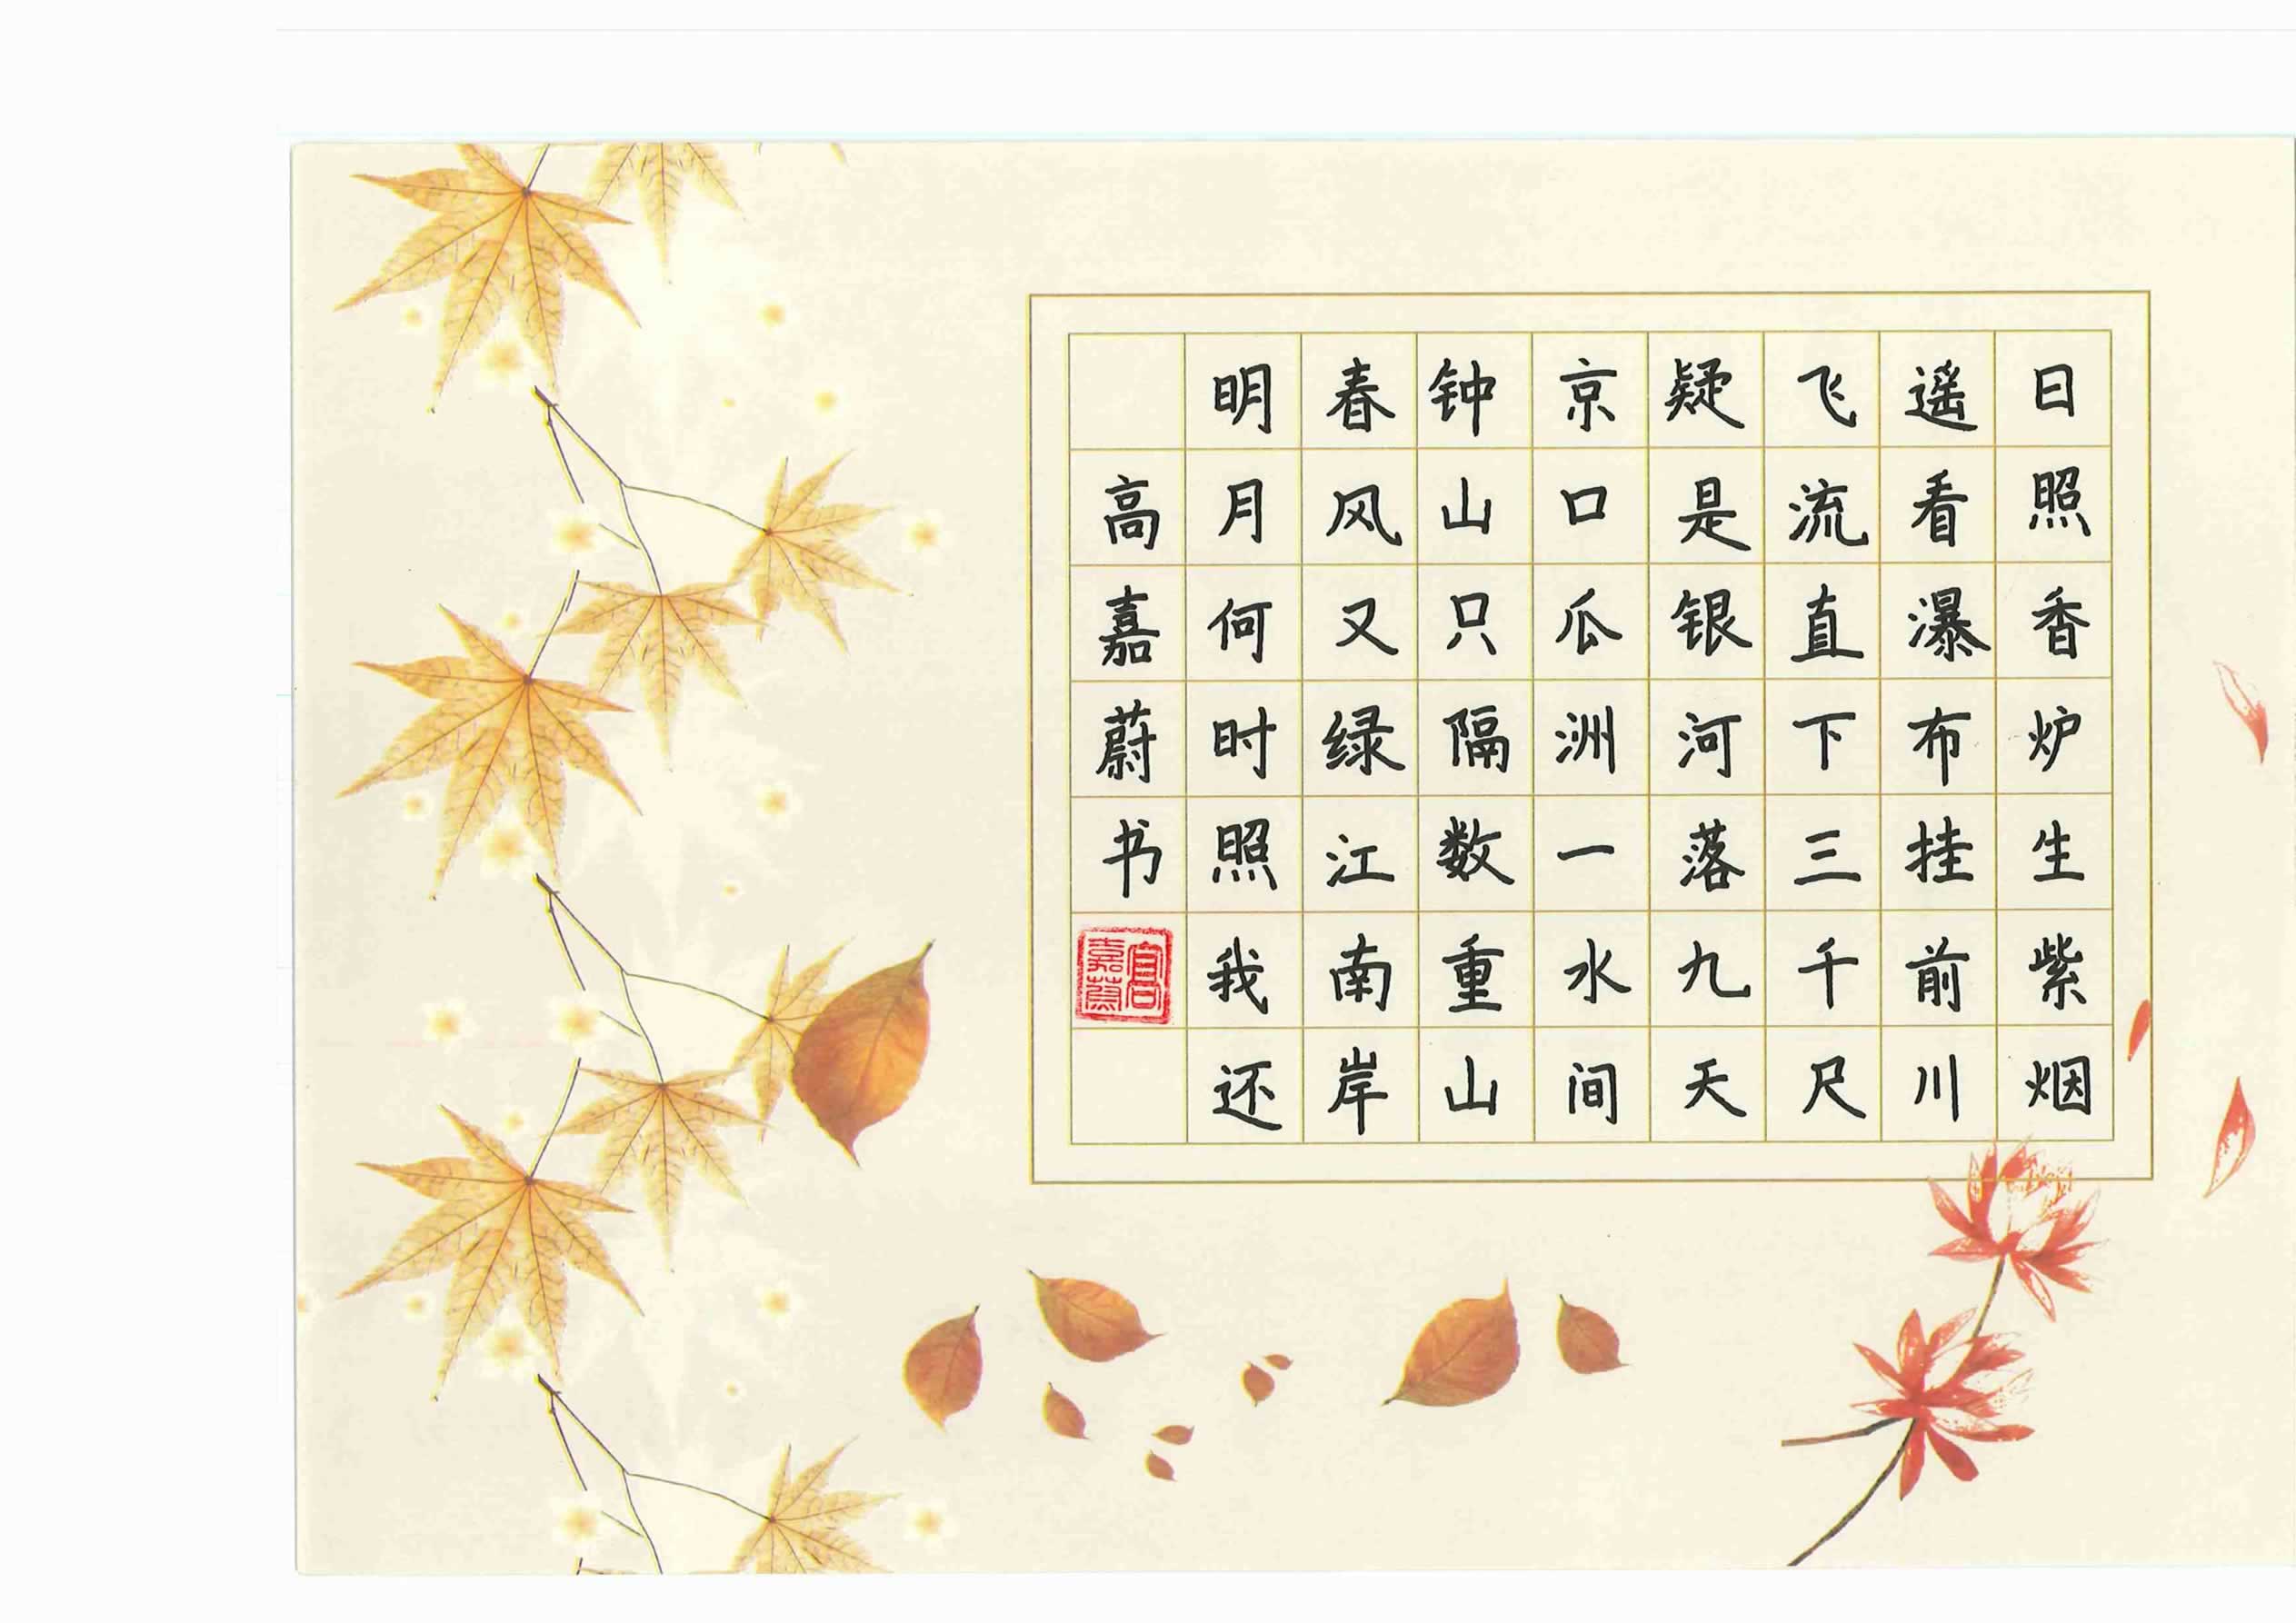 日照香炉生紫烟
遥看瀑布挂前川
飞流直下三千尺
疑是银河落九天
京口瓜洲一水间
钟山只隔数重山
春风又绿江南岸
明月何时照我还
高嘉蔚书
高嘉蔚